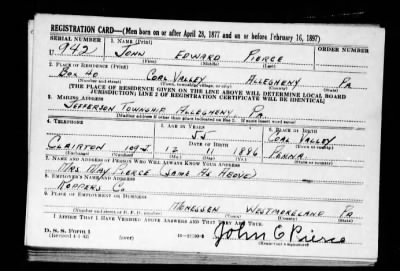 REGISTRATION CARD—(Men born on or after April 28, 1877 and on or before February 16, 1897)
SERIAL NUMBER 1. NAME (Print)
U 942 JOHN EDWARD PIERCE
(First) (Middle) (Last)
2. PLACE OF RESIDENCE (Print)
BOX 40 COAL VALLEY ALLEGHENY PA
(Number and street) (Town, township, village, or city) (County) (State)
[THE PLACE OF RESIDENCE GIVEN ON THE LINE ABOVE WILL DETERMINE LOCAL BOARD
JURISDICTION; LINE 2 OF REGISTRATION CERTIFICATE WILL BE IDENTICAL]
3. MAILING ADDRESS
JEFFERSON TOWNSHIP ALLEGHENY PA.
[Mailing address if other than place indicated on line 2. If same insert word same]
4. TELEPHONE 5. AGE IN YEARS 6. PLACE OF BIRTH
55 COAL VALLEY
DATE OF BIRTH (Town or county)
CLAIRTON 12 1 1886 PENNA
(Exchange) (Number) (Mo.) (Day) (Yr.) (State or country)
7. NAME AND ADDRESS OF PERSON WHO WILL ALWAYS KNOW YOUR ADDRESS
MRS MAY PIERCE (SAME AS ABOVE)
8. EMPLOYER'S NAME AND ADDRESS
KOPPERS CO.
9. PLACE OF EMPLOYMENT OR BUSINESS
MONESSEN WESTMORELAND PA
(Number and street or R. F. D. number) (Town) (County) (State)
I AFFIRM THAT I HAVE VERIFIED ABOVE ANSWERS AND THAT THEY ARE TRUE.
D. S. S. Form 1
(Revised 4-1-42) (over)
John E Pierce
(Registrant's signature)